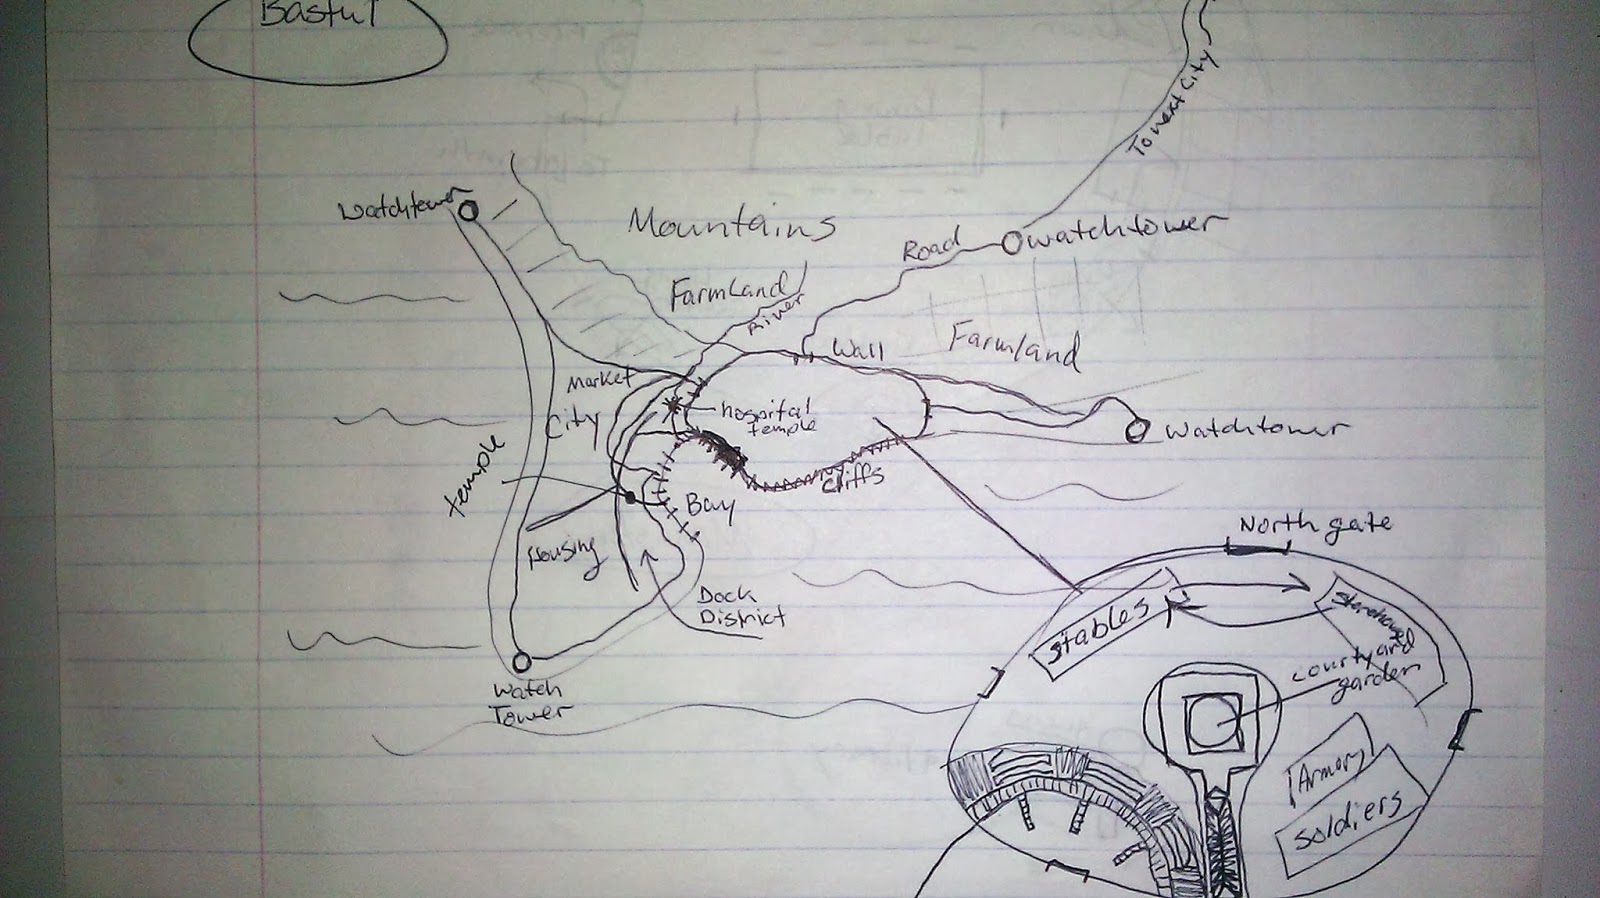 Bastut
To next City
watchtower
Mountains
Road
watchtower
Farmland
River
Farmland
Wall
Market
City
hospital
temple
watchtower
cliffs
temple
Bay
Housing
Dock
District
Watch
Tower
North gate
Stables
Storehouse
courtyard
garden
Armory
Soldiers